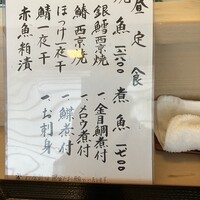 昼定食
焼魚 一三〇〇
銀鱈西京焼
鰆西京焼
ほっけ一夜干
鯖一夜干
赤魚粕漬
煮魚 一七〇〇
一、金目鯛煮付
一、メロウ煮付
一、鰈煮付
一、お刺身